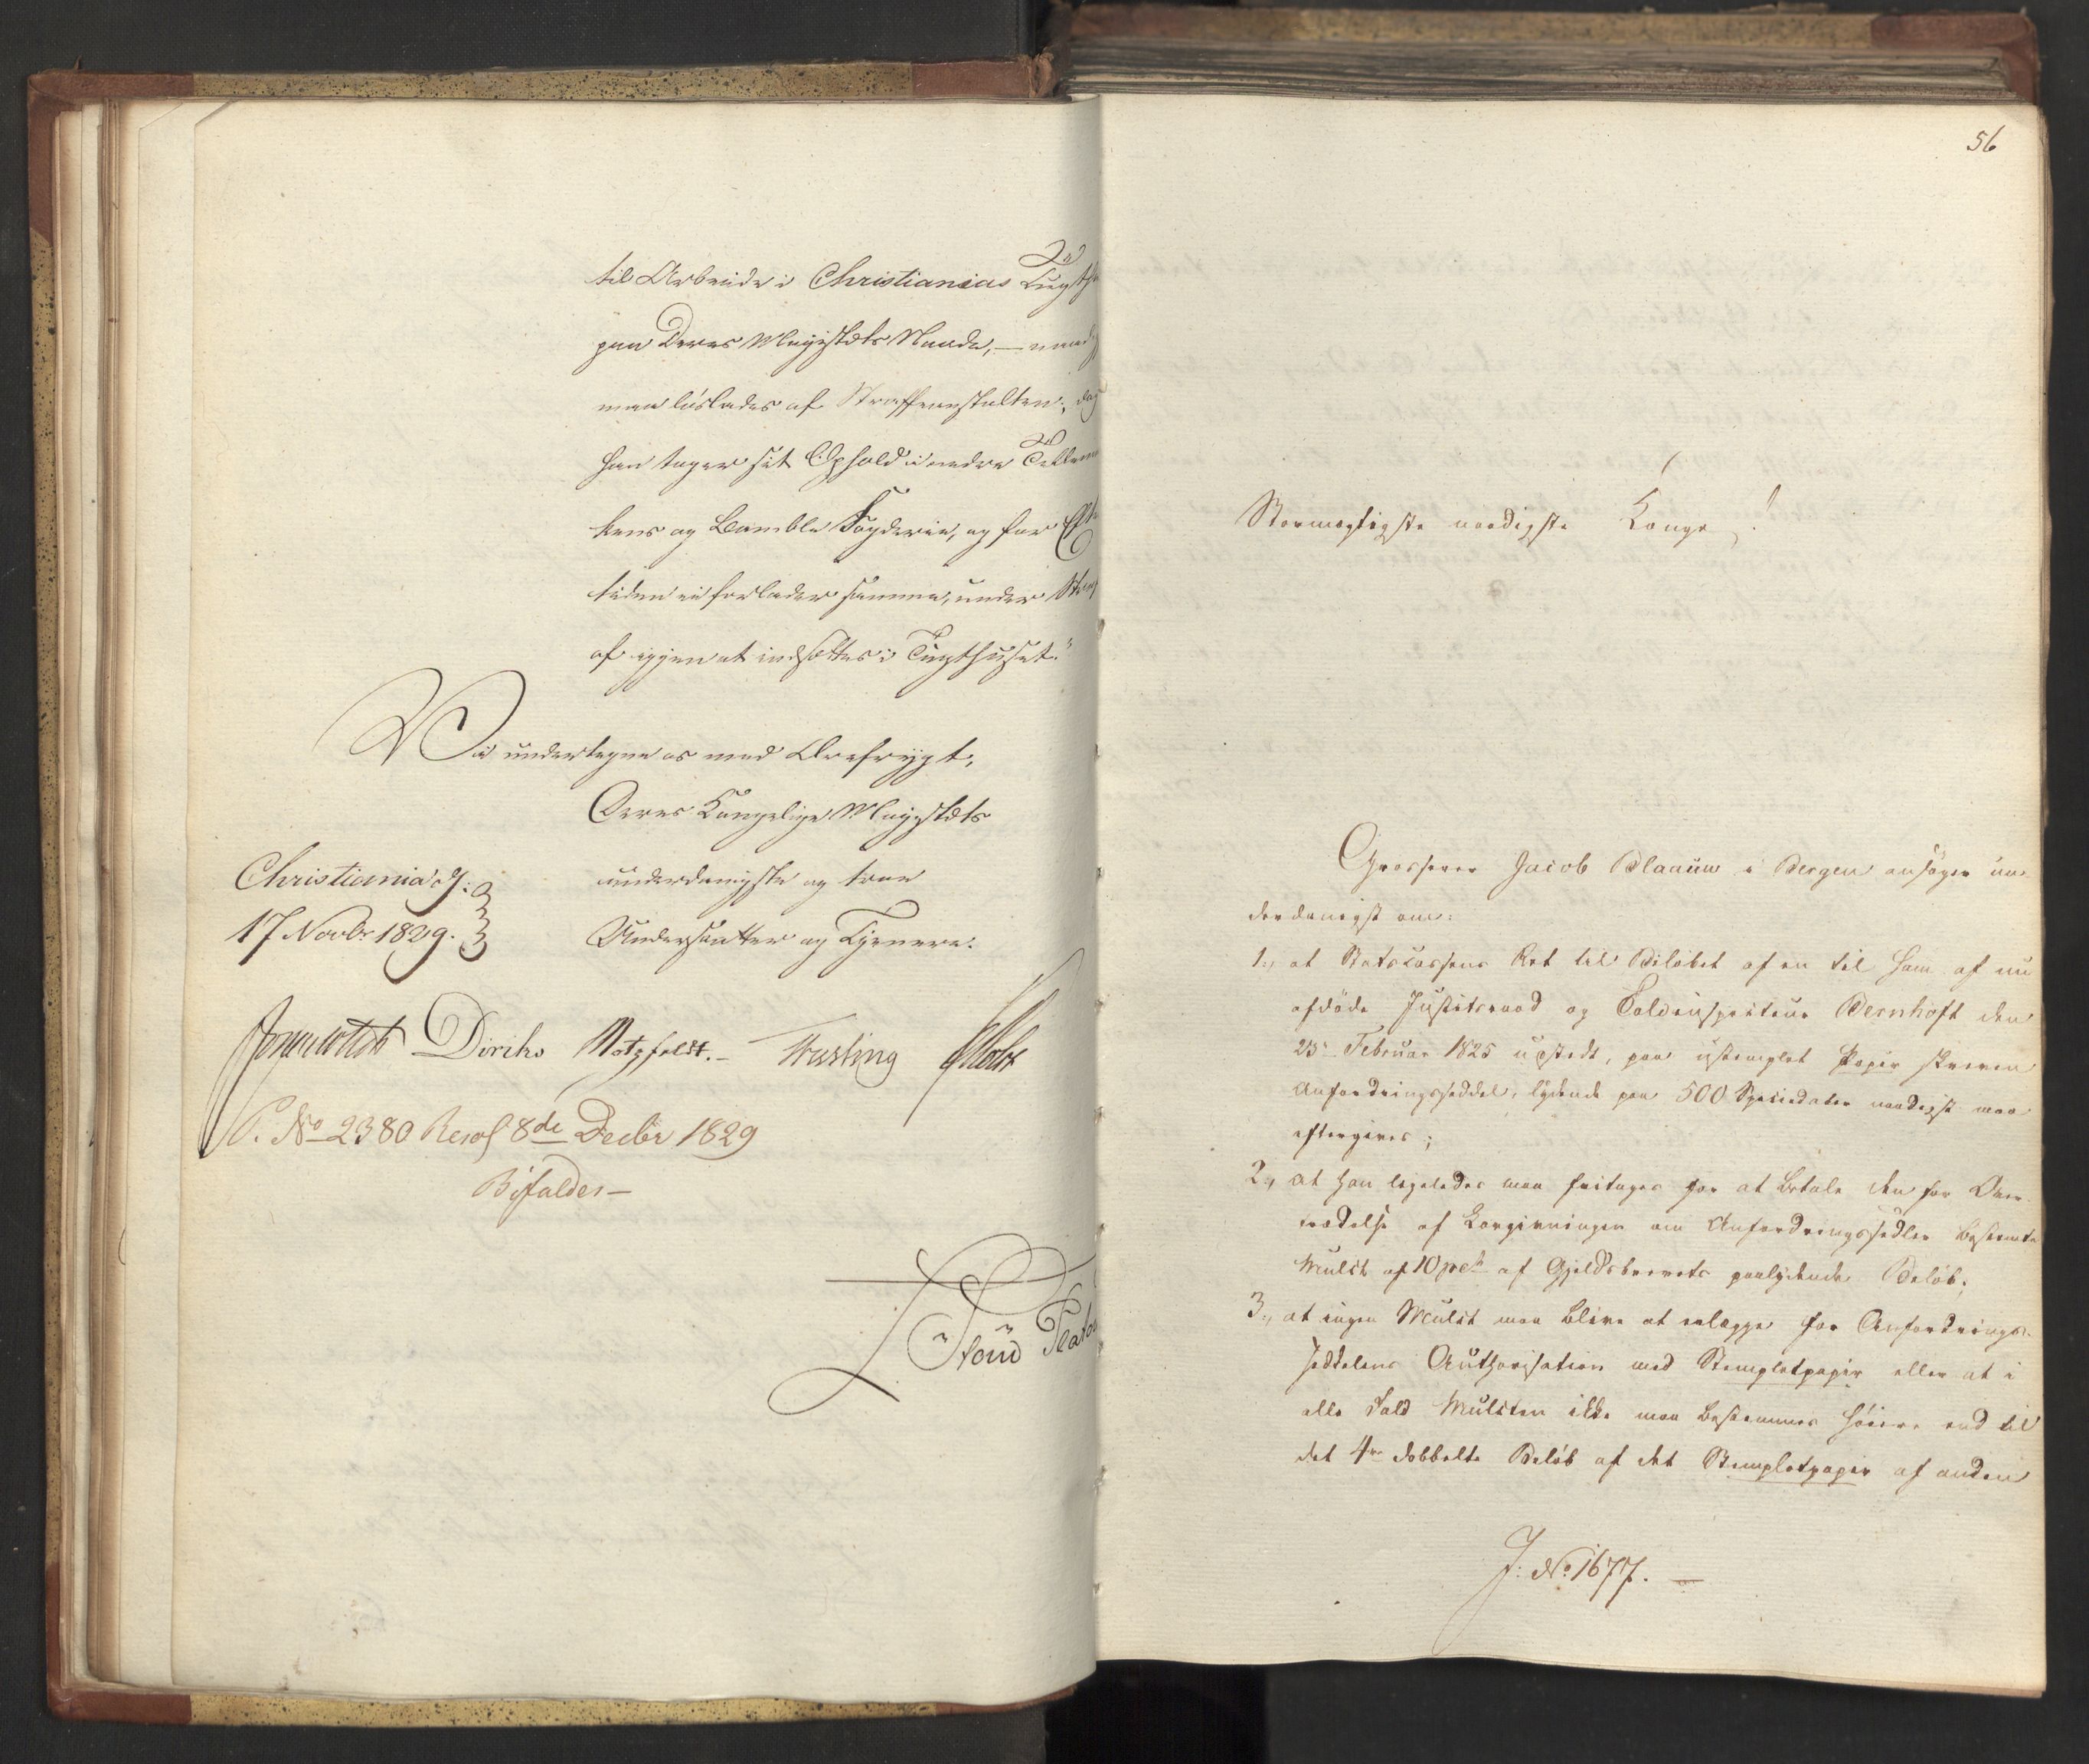 til Arbeide i Christianias Tugth
paa Deres Majestæts Naade, — naad
maa löslades af Straffeanstalten, dog
han tager sit Ophold i nedre Tellem
kens og Bamble Fogderie, og for Eft
tiden ei forlader samme, under Straf
af igjen at indsættes i Tugthuset."
Vi undertegne os med Ærefrygt,
Deres Kongelige Majestæts
Christiania d:
underdanigste og troe
17 Novbr 1829.
Undersaatter og Tjenere.
Diriks Motzfeldt. — Krebs
P. No 2380 Resol 8de Decbr 1829
Bifaldes —
56
Stormægtigste naadigste Konge!
Grosserer Jacob Blaauw i Bergen ansöger un-
derdanigst om:
1., at Statscassens Ret til Belöbet af en til ham af nu
afdöde Justitsraad og Toldinspecteur Bernhoft den
25 Februar 1825 udstedt, paa ustemplet Papir skreven
Anfordringsseddel, lydende paa 500 Speciedaler naadigst maa
eftergives;
2, at han ligeledes maa fritages for at betale den for Over-
trædelse af Lovgivningen om Anfordringssedler bestemte
Mulct af 10 pCt af Gjeldsbrevets paalydende Belöb;
3., at ingen Mulct maa blive at erlægge for Anfordrings-
seddelens Authorisation med Stempletpapir eller at i
alle Fald Mulcten ikke maa bestemmes höiere end til
det 4re dobbelte Belöb af det Stempletpapir af anden
J: No 1677. —